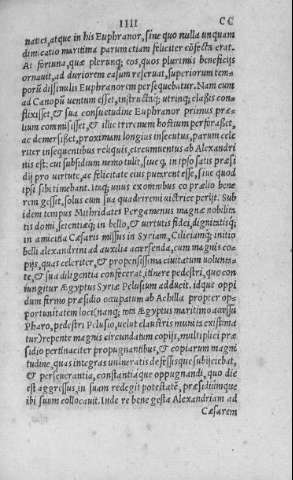 IIII CC
nates, atque in his Euphranor, sine quo nulla unquam
dimicatio maritima parum etiam feliciter cōfecta erat.
At fortuna, quæ plerunq; eos, quos plurimis beneficijs
ornauit, ad duriorem casum reseruat, superiorum tem-
porū dissimilis Euphranorem persequebatur. Nam cum
ad Canopū uentum esset, instructáq; utrinq; classis con-
flixisset, & sua consuetudine Euphranor primus præ-
lium commisisset, & illic triremem hostium perforasset,
ac demersisset, proximam longius insecutus, parum cele
riter insequentibus reliquis, circumuentus ab Alexandri
nis est: cui subsidium nemo tulit, siue q in ipso satis præsi
dij pro uirtute, ac felicitate eius putarent esse, siue quod
ipsi sibi timebant. Itaq; unus ex omnibus eo prælio bene
rem gessit, solus cum sua quadriremi uictrice perijt. Sub
idem tempus Mithridates Pergamenus magnæ nobilita
tis domi, scientiæq; in bello, & uirtutis fidei, dignitatisq;
in amicitia Cæsaris missus in Syriam, Ciliciamq; initio
belli alexandrini ad auxilia accersenda, cum magnis co-
pijs, quas celeriter, & propensissima ciuitatum uolunta-
te, & sua diligentia confecerat, itinere pedestri, quo con
iungitur Ægyptus Syriæ Pelusium adducit. idq; oppi
dum firmo præsidio occupatum ab Achilla propter op-
portunitatem loci (nanq; tota Ægyptus maritimo accessu
Pharo, pedestri Pelusio, uelut claustris munita existima
tur) repente magnis circundatum copijs, multiplici præ
sidio pertinaciter propugnantibus, & copiarum magni
tudine, quas integras uulneratis defessisque subijciebat,
& perseuerantia, constantiaque oppugnandi, quo die
est aggressus, in suam redegit potestatē, præsidiumque
ibi suum collocauit. Inde re bene gesta Alexandriam ad
Cæsarem